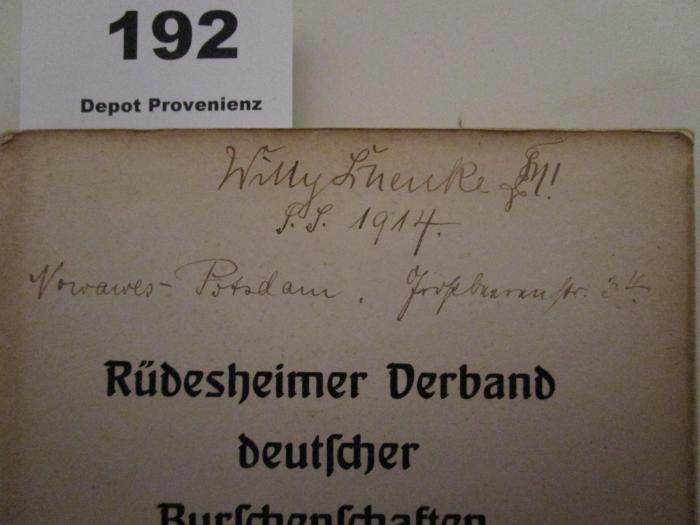 192
Depot Provenienz
Willy
S. S. 1914.
Nowawes-Potsdam. Großbeerenstr.
Rüdesheimer Verband
deutſcher
Burſchenſchaften